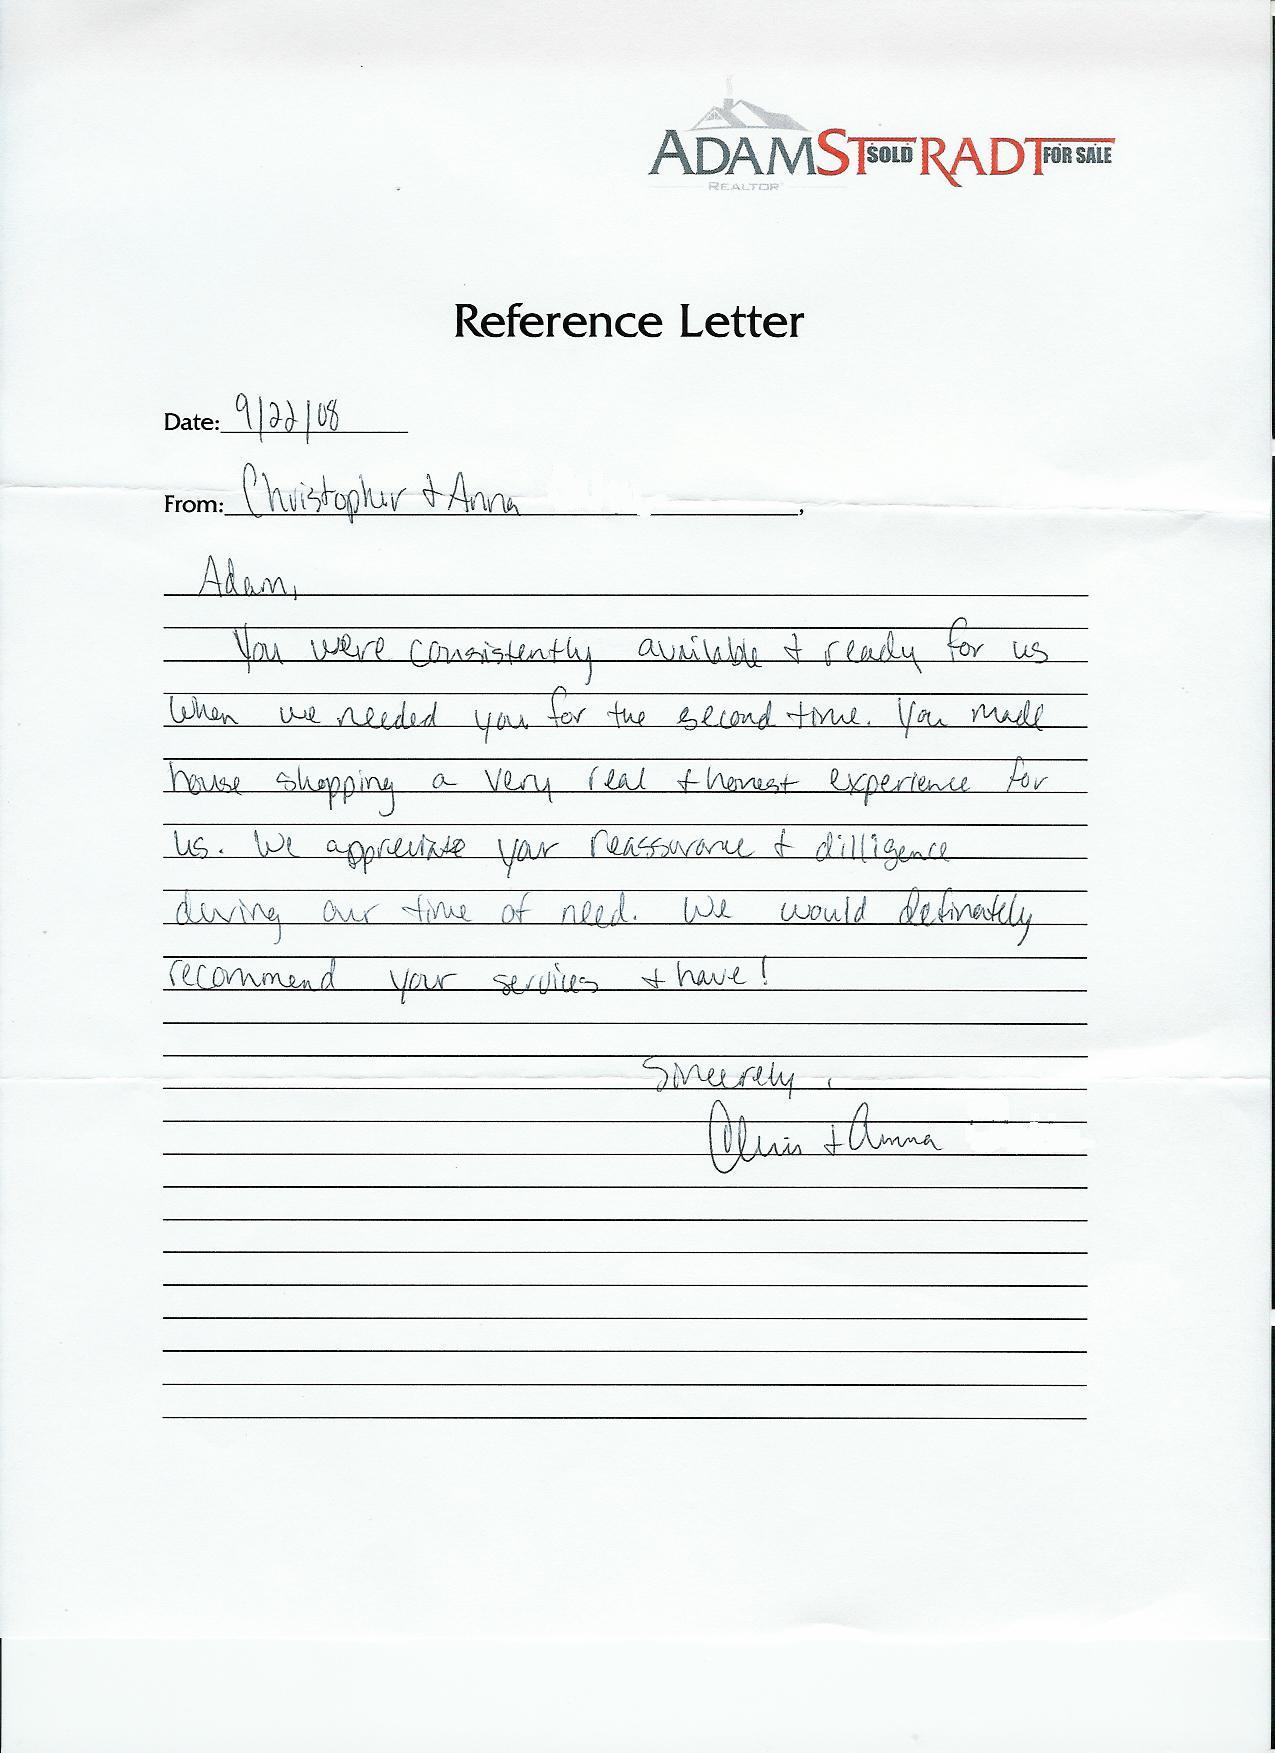 ADAM STRADT
SOLD
FOR SALE
REALTOR
Reference Letter
Date: 9/22/08
From: Christopher + Anna ,
Adam,
You were consistently available + ready for us
when we needed you for the second time. You made
house shopping a very real + honest experience for
us. We appreciate your reassurance + dilligence
during our time of need. We would definately
recommend your services + have!
Sincerely,
Chris + Anna